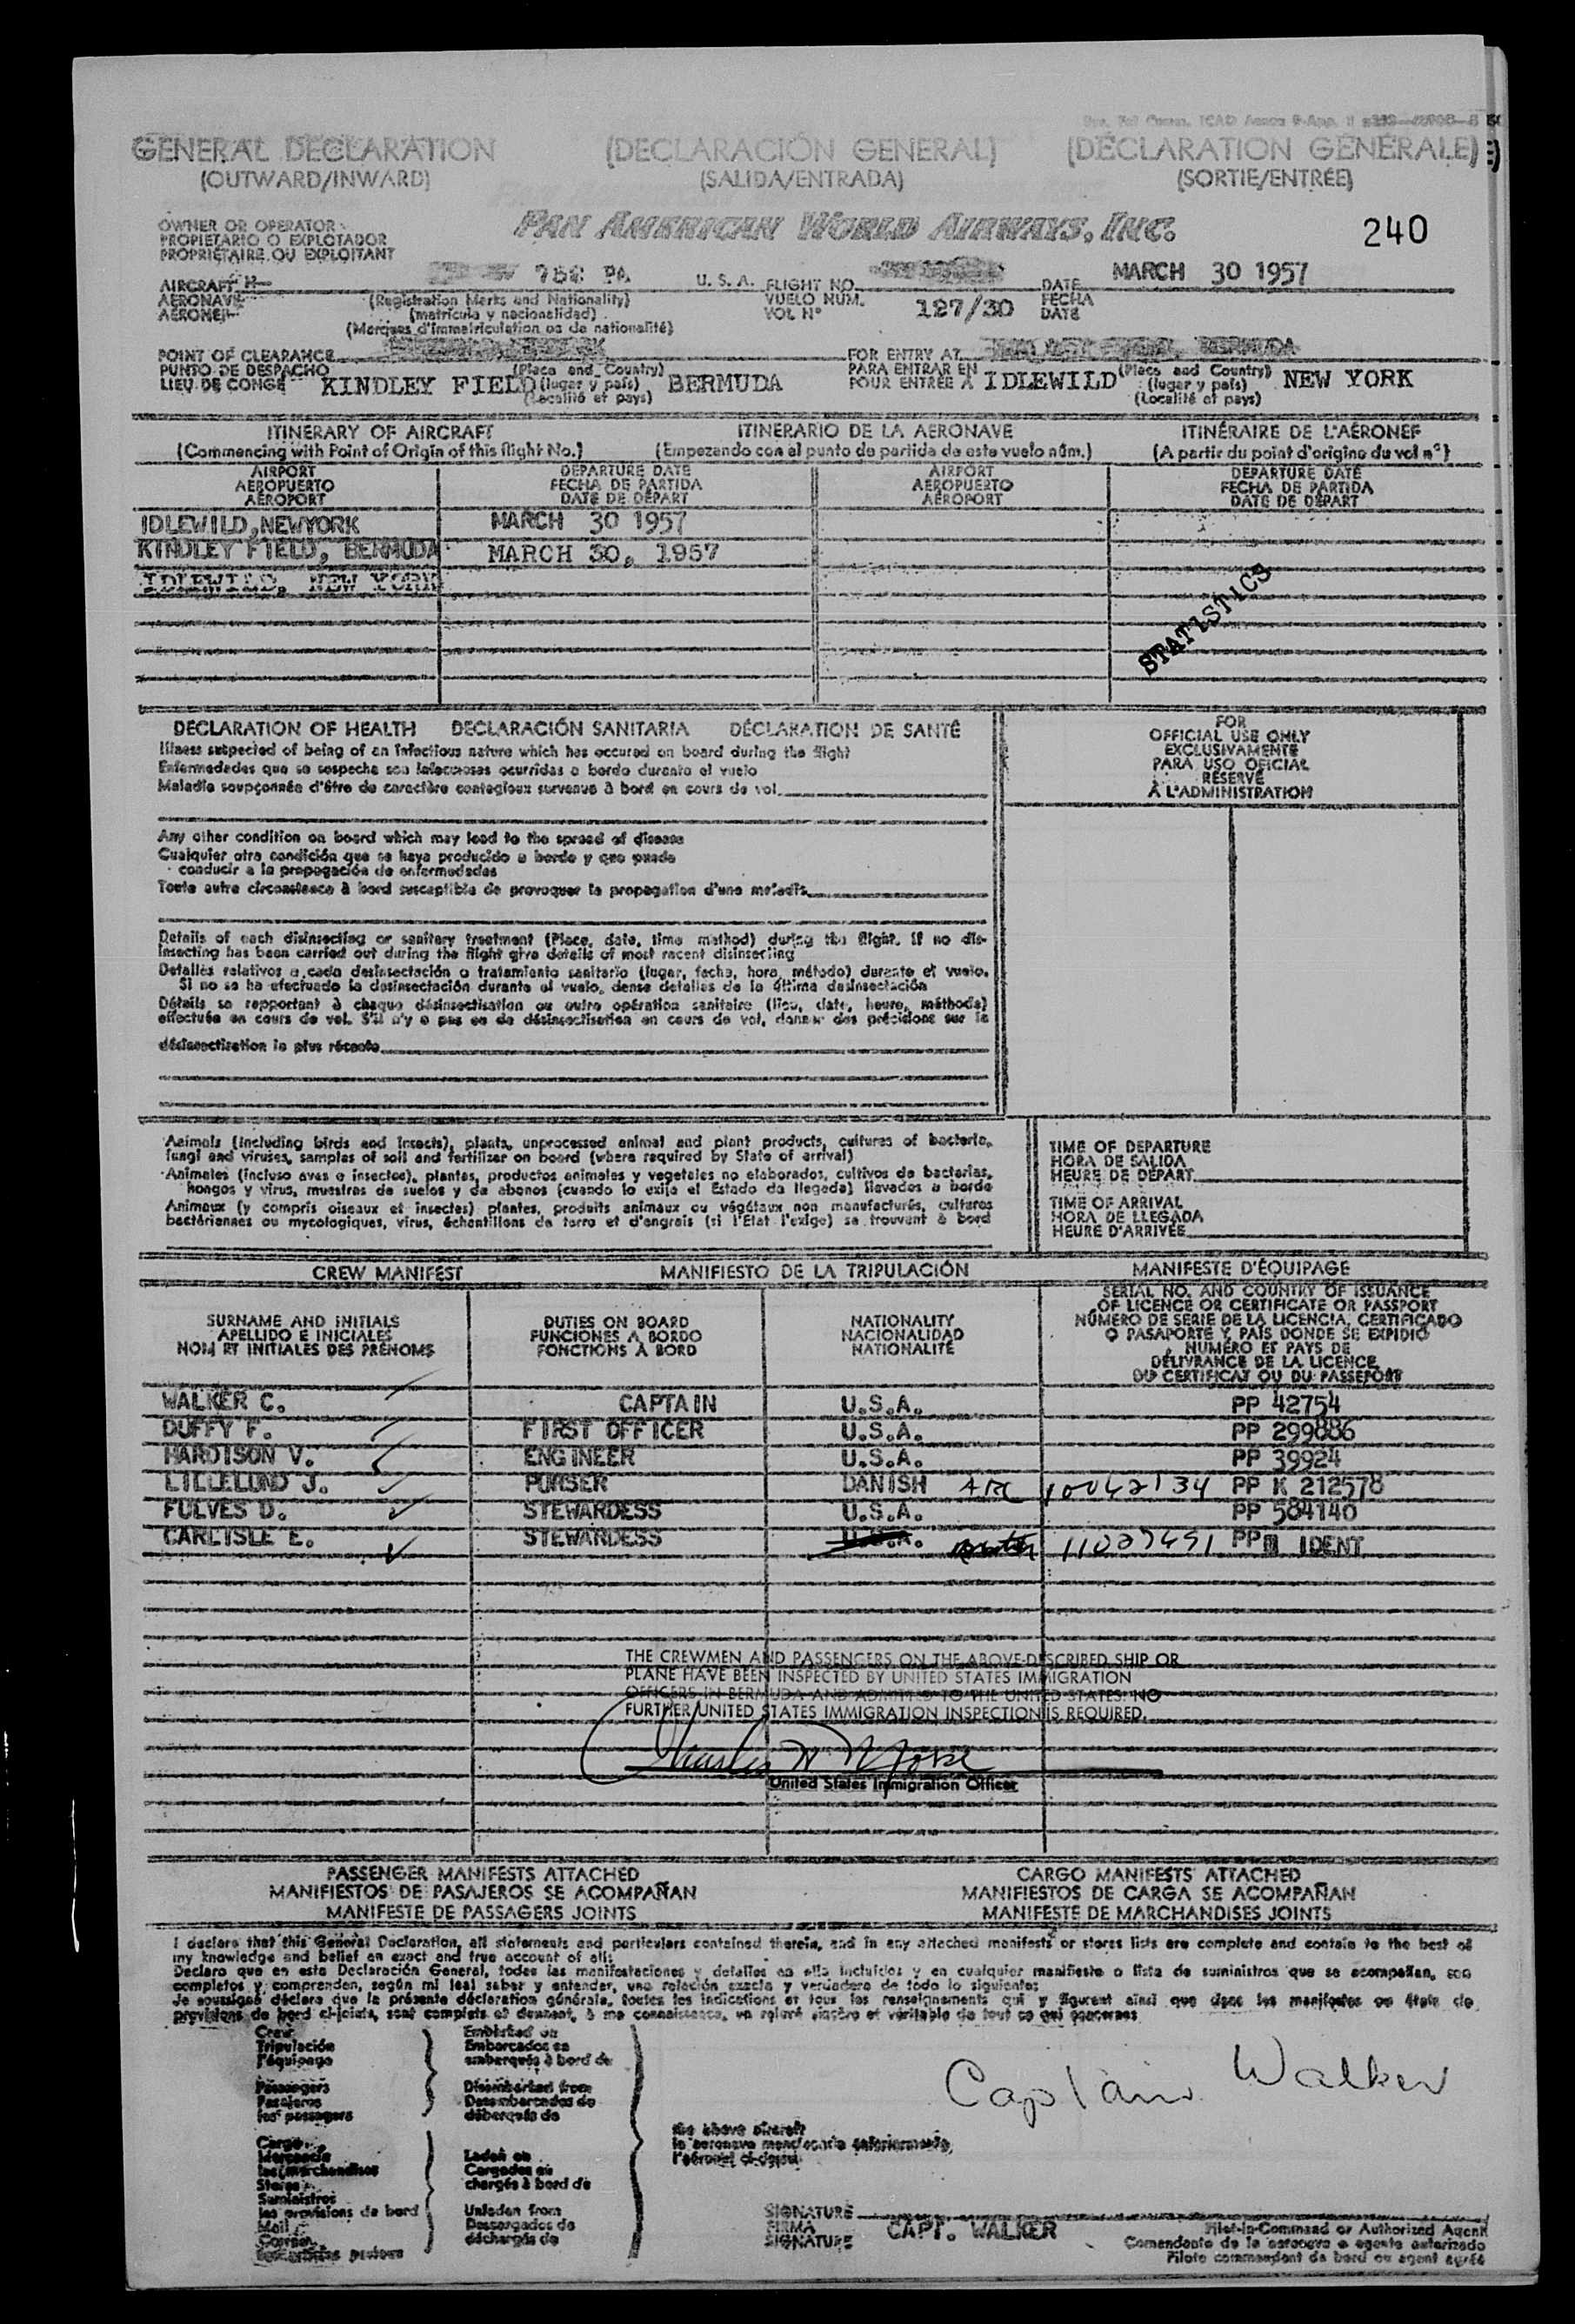 GENERAL DECLARATION (DECLARACIÓN GENERAL) (DÉCLARATION GÉNÉRALE)
(OUTWARD/INWARD) (SALIDA/ENTRADA) (SORTIE/ENTRÉE)
OWNER OR OPERATOR PAN AMERICAN WORLD AIRWAYS, INC. 240
PROPIETARIO O EXPLOTADOR
PROPRIÉTAIRE OU EXPLOITANT
AIRCRAFT PA U. S. A. FLIGHT NO. DATE MARCH 30 1957
AERONAVE (Registration Marks and Nationality) VUELO NÚM. 127/30 FECHA
AÉRONEF (matrícula y nacionalidad) VOL Nº DATE
(Marques d'immatriculation ou de nationalité)
POINT OF CLEARANCE FOR ENTRY AT BERMUDA
PUNTO DE DESPACHO (Place and Country) PARA ENTRAR EN (Place and Country)
LIEU DE CONGÉ KINDLEY FIELD (lugar y país) BERMUDA POUR ENTRÉE À IDLEWILD (lugar y país) NEW YORK
(Localité et pays) (Localité et pays)
ITINERARY OF AIRCRAFT ITINERARIO DE LA AERONAVE ITINÉRAIRE DE L'AÉRONEF
(Commencing with Point of Origin of this flight No.) (Empezando con el punto de partida de este vuelo núm.) (A partir du point d'origine du vol nº)
AIRPORT DEPARTURE DATE AIRPORT DEPARTURE DATE
AEROPUERTO FECHA DE PARTIDA AEROPUERTO FECHA DE PARTIDA
AÉROPORT DATE DE DÉPART AÉROPORT DATE DE DÉPART
IDLEWILD, NEWYORK MARCH 30 1957
KINDLEY FIELD, BERMUDA MARCH 30, 1957
IDLEWILD, NEW YORK
STATISTICS
DECLARATION OF HEALTH DECLARACIÓN SANITARIA DÉCLARATION DE SANTÉ
Illness suspected of being of an infectious nature which has occured on board during the flight
Enfermedades que se sospecha son infecciosas ocurridas a bordo durante el vuelo
Maladie soupçonnée d'être de caractère contagieux survenue à bord en cours de vol
FOR
OFFICIAL USE ONLY
EXCLUSIVAMENTE
PARA USO OFICIAL
RÉSERVÉ
À L'ADMINISTRATION
Any other condition on board which may lead to the spread of disease
Cualquier otra condición que se haya producido a bordo y que puede
conducir a la propagación de enfermedades
Toute autre circonstance à bord susceptible de provoquer la propagation d'une maladie
Details of each disinsecting or sanitary treatment (Place, date, time method) during the flight. If no dis-
insecting has been carried out during the flight give details of most recent disinsecting
Detalles relativos a cada desinsectación o tratamiento sanitario (lugar, fecha, hora, método) durante el vuelo.
Si no se ha efectuado la desinsectación durante el vuelo, dense detalles de la última desinsectación
Détails se rapportant à chaque désinsectisation ou autre opération sanitaire (lieu, date, heure, méthode)
effectuée en cours de vol. S'il n'y a pas eu de désinsectisation en cours de vol, donner des précisions sur la
désinsectisation la plus récente
Animals (including birds and insects), plants, unprocessed animal and plant products, cultures of bacteria,
fungi and viruses, samples of soil and fertilizer on board (where required by State of arrival)
Animales (incluso aves e insectos), plantas, productos animales y vegetales no elaborados, cultivos de bacterias,
hongos y virus, muestras de suelos y de abonos (cuando lo exija el Estado de llegada) llevados a bordo
Animaux (y compris oiseaux et insectes) plantes, produits animaux ou végétaux non manufacturés, cultures
bactériennes ou mycologiques, virus, échantillons de terre et d'engrais (si l'Etat l'exige) se trouvant à bord
TIME OF DEPARTURE
HORA DE SALIDA
HEURE DE DÉPART
TIME OF ARRIVAL
HORA DE LLEGADA
HEURE D'ARRIVÉE
CREW MANIFEST MANIFIESTO DE LA TRIPULACIÓN MANIFESTE D'ÉQUIPAGE
SURNAME AND INITIALS DUTIES ON BOARD NATIONALITY
APELLIDO E INICIALES FUNCIONES A BORDO NACIONALIDAD
NOM ET INITIALES DES PRÉNOMS FONCTIONS À BORD NATIONALITÉ
SERIAL NO. AND COUNTRY OF ISSUANCE
OF LICENCE OR CERTIFICATE OR PASSPORT
NÚMERO DE SERIE DE LA LICENCIA, CERTIFICADO
O PASAPORTE Y PAÍS DONDE SE EXPIDIÓ
NUMÉRO ET PAYS DE
DÉLIVRANCE DE LA LICENCE
DU CERTIFICAT OU DU PASSEPORT
WALKER C. CAPTAIN U.S.A. PP 42754
DUFFY F. FIRST OFFICER U.S.A. PP 299886
HARDISON V. ENGINEER U.S.A. PP 39924
LILLELUND J. PURSER DANISH ARC 10042134 PP K 212578
FULVES D. STEWARDESS U.S.A. PP 584140
CARLISLE E. STEWARDESS U.S.A. PP IDENT
THE CREWMEN AND PASSENGERS ON THE ABOVE-DESCRIBED SHIP OR
PLANE HAVE BEEN INSPECTED BY UNITED STATES IMMIGRATION
OFFICERS IN BERMUDA AND ADMITTED TO THE UNITED STATES. NO
FURTHER UNITED STATES IMMIGRATION INSPECTION IS REQUIRED.
United States Immigration Officer
PASSENGER MANIFESTS ATTACHED CARGO MANIFESTS ATTACHED
MANIFIESTOS DE PASAJEROS SE ACOMPAÑAN MANIFIESTOS DE CARGA SE ACOMPAÑAN
MANIFESTE DE PASSAGERS JOINTS MANIFESTE DE MARCHANDISES JOINTS
I declare that this General Declaration, all statements and particulars contained therein, and in any attached manifests or stores lists are complete and contain to the best of
my knowledge and belief an exact and true account of all:
Declaro que en esta Declaración General, todas las manifestaciones y detalles en ella incluídos y en cualquier manifiesto o lista de suministros que se acompañan, son
completos y comprenden, según mi leal saber y entender, una relación exacta y verdadera de todo lo siguiente:
Je soussigné déclare que la présente déclaration générale, toutes les indications et tous les renseignements qui y figurent ainsi que dans les manifestes ou états de
provisions de bord ci-joints, sont complets et donnent, à ma connaissance, un relevé sincère et véritable de tout ce qui concerne:
Crew Embarked on
Tripulación Embarcados en
l'équipage embarqués à bord de
Passengers Disembarked from
Pasajeros Desembarcados de
les passagers débarqués de
Captain Walker
the above aircraft
la aeronave mencionada anteriormente,
l'aéronef ci-dessus
Cargo
Mercancía Laden on
les marchandises Cargados en
Stores chargés à bord de
Suministros
les provisions de bord Unladen from
Mail Descargados de
Correo déchargés de
SIGNATURE
FIRMA CAPT. WALKER
SIGNATURE
Pilot-in-Command or Authorized Agent
Comandante de la aeronave o agente autorizado
Pilote commandant de bord ou agent agréé